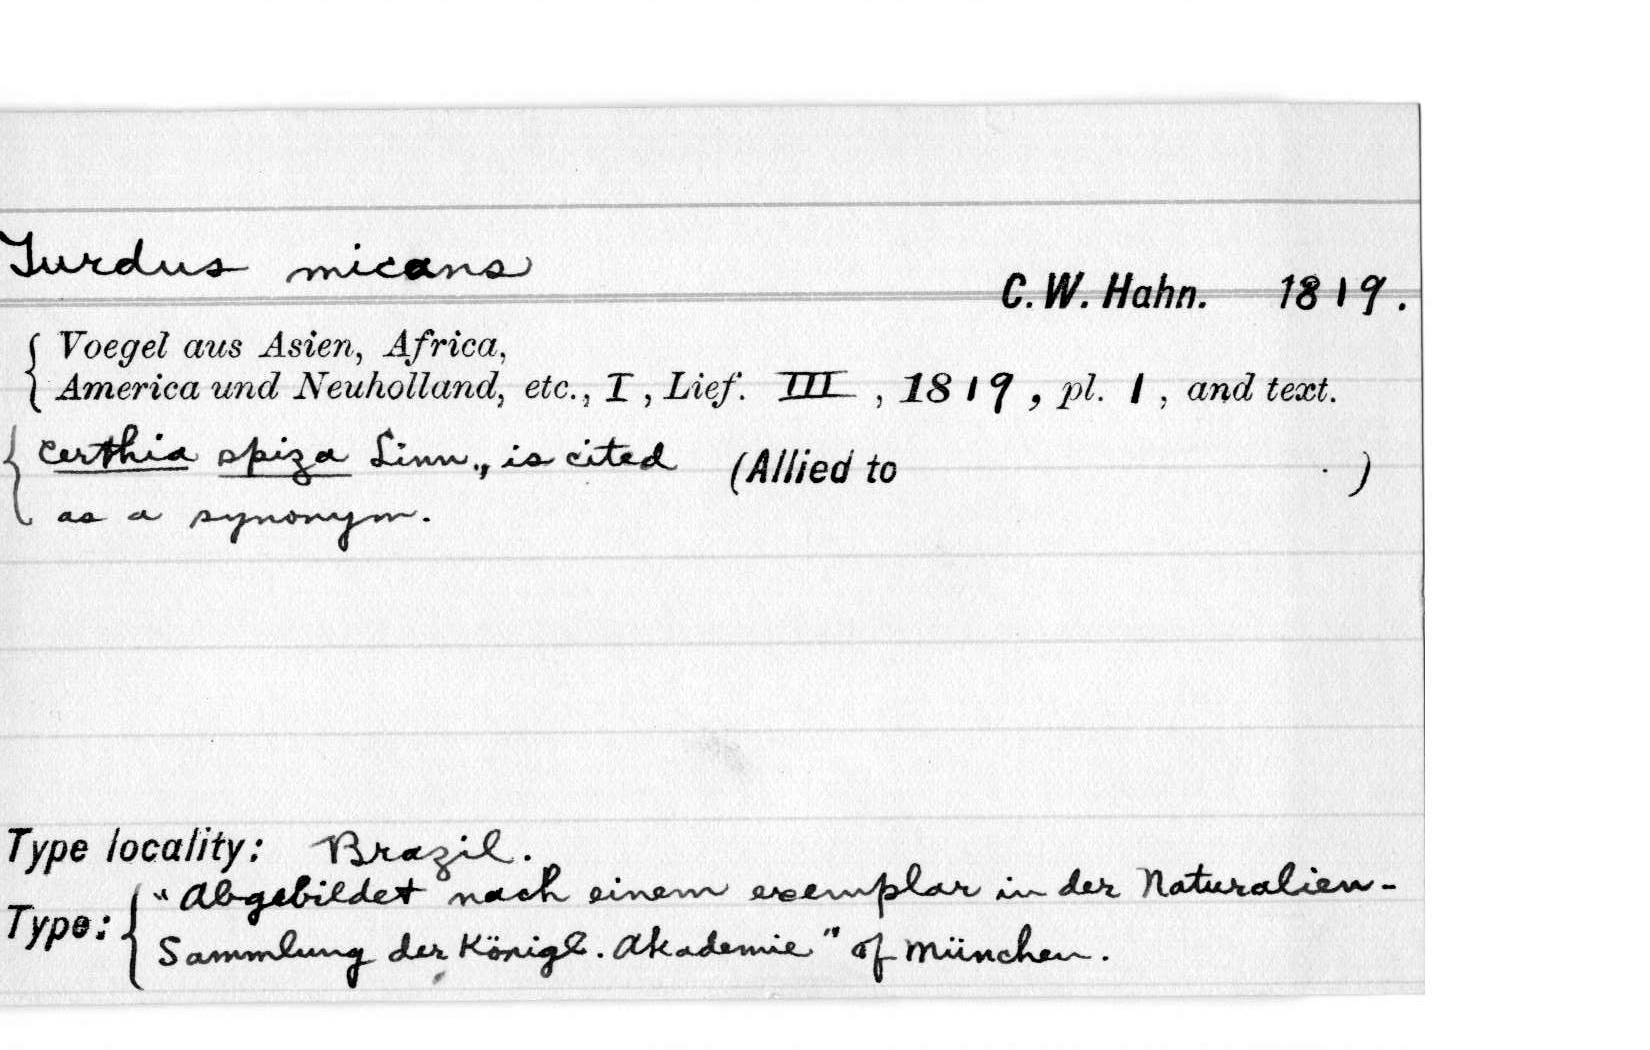 Turdus micans
C. W. Hahn. 1819.
Voegel aus Asien, Africa,
America und Neuholland, etc., I, Lief. III, 1819, pl. 1, and text.
Certhia spiza Linn., is cited (Allied to . )
as a synonym.
Type locality: Brazil.
"Abgebildet nach einem exemplar in der Naturalien-
Type: Sammlung der Königl. Akademie" of München.